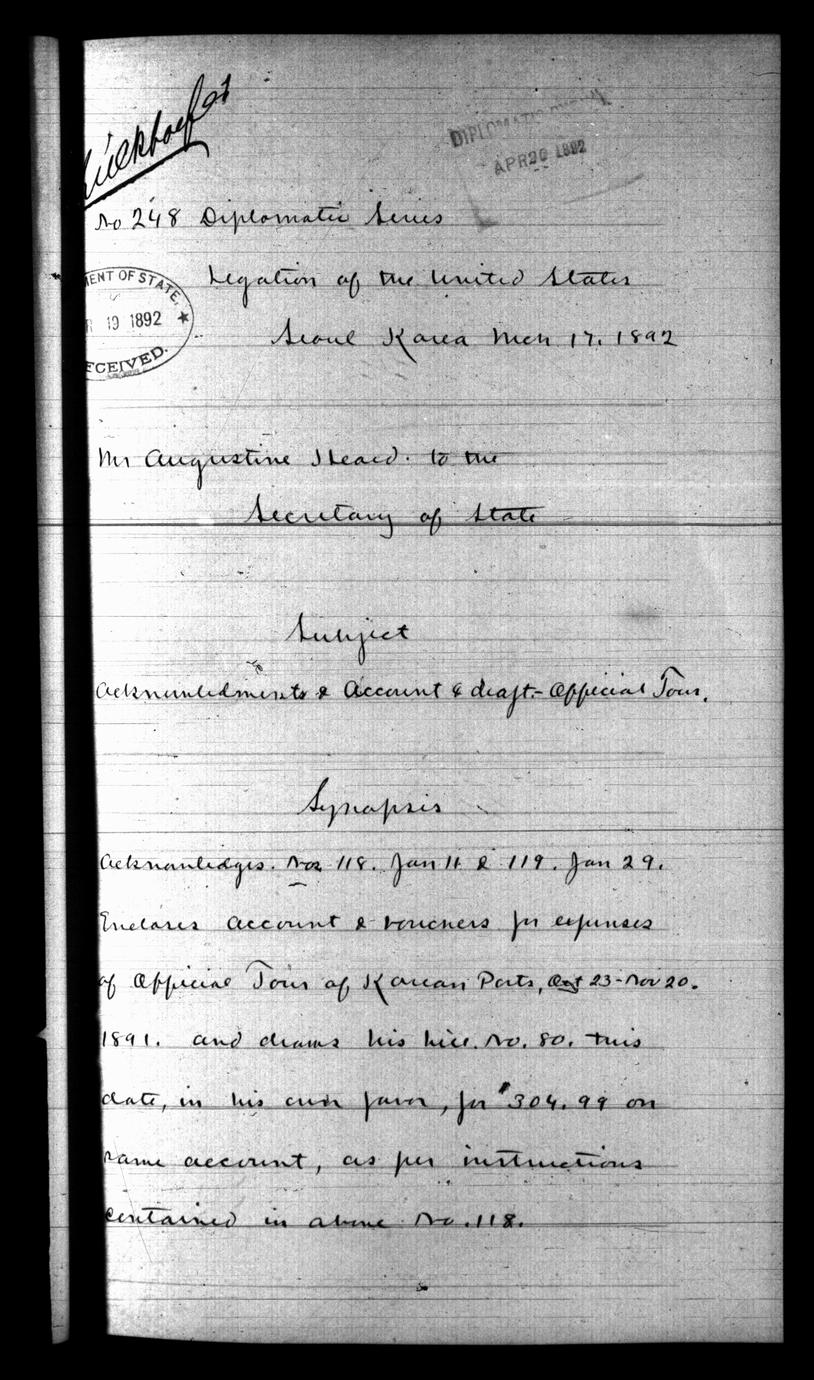 DIPLOMATIC BUREAU
APR 20 1892
No 248 Diplomatic Series
MENT OF STATE,
Legation of the United States
R 19 1892
ECEIVED.
Seoul Korea Mch 17. 1892
Mr Augustine Heard. to the
Secretary of State
Subject
Acknowledments & Account & draft - Official Tour.
Synopsis
Acknowledges. Nos 118. Jan 11 & 119. Jan 29.
Encloses account & vouchers for expenses
of Official Tour of Korean Ports, Oct 23 - Nov 20.
1891. and draws his bill. No. 80. this
date, in his own favor, for $304.99 on
same account, as per instructions
contained in above No. 118.